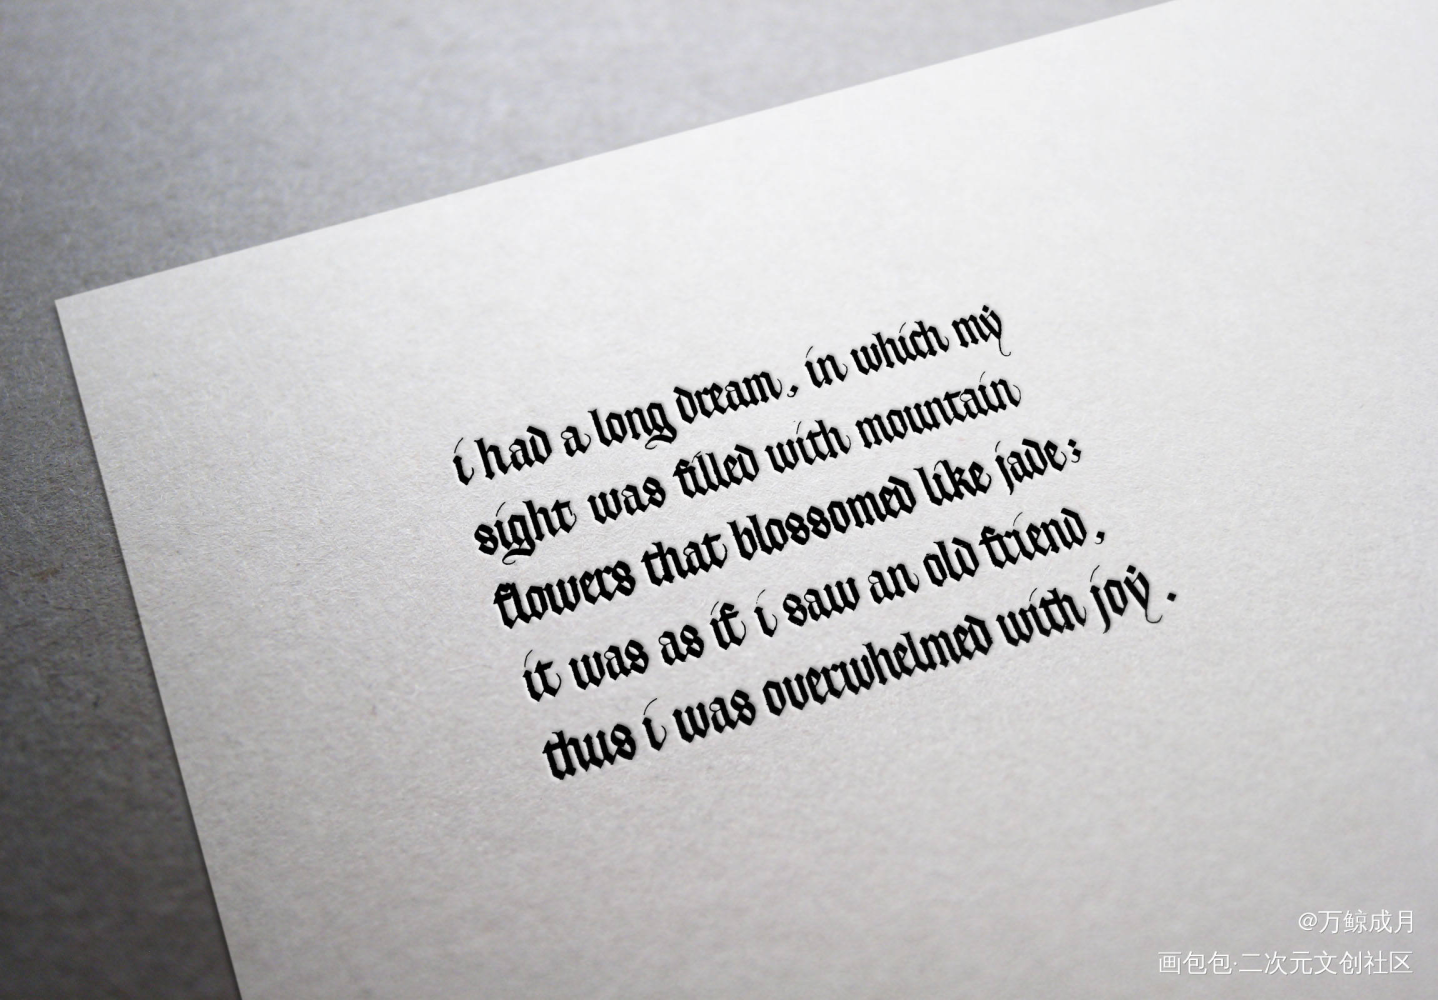 i had a long dream, in which mẏ
sight was filled with mountain
flowers that blossomed like jade;
it was as if i saw an old friend,
thus i was overwhelmed with joẏ.
@万鲸成月
画包包·二次元文创社区